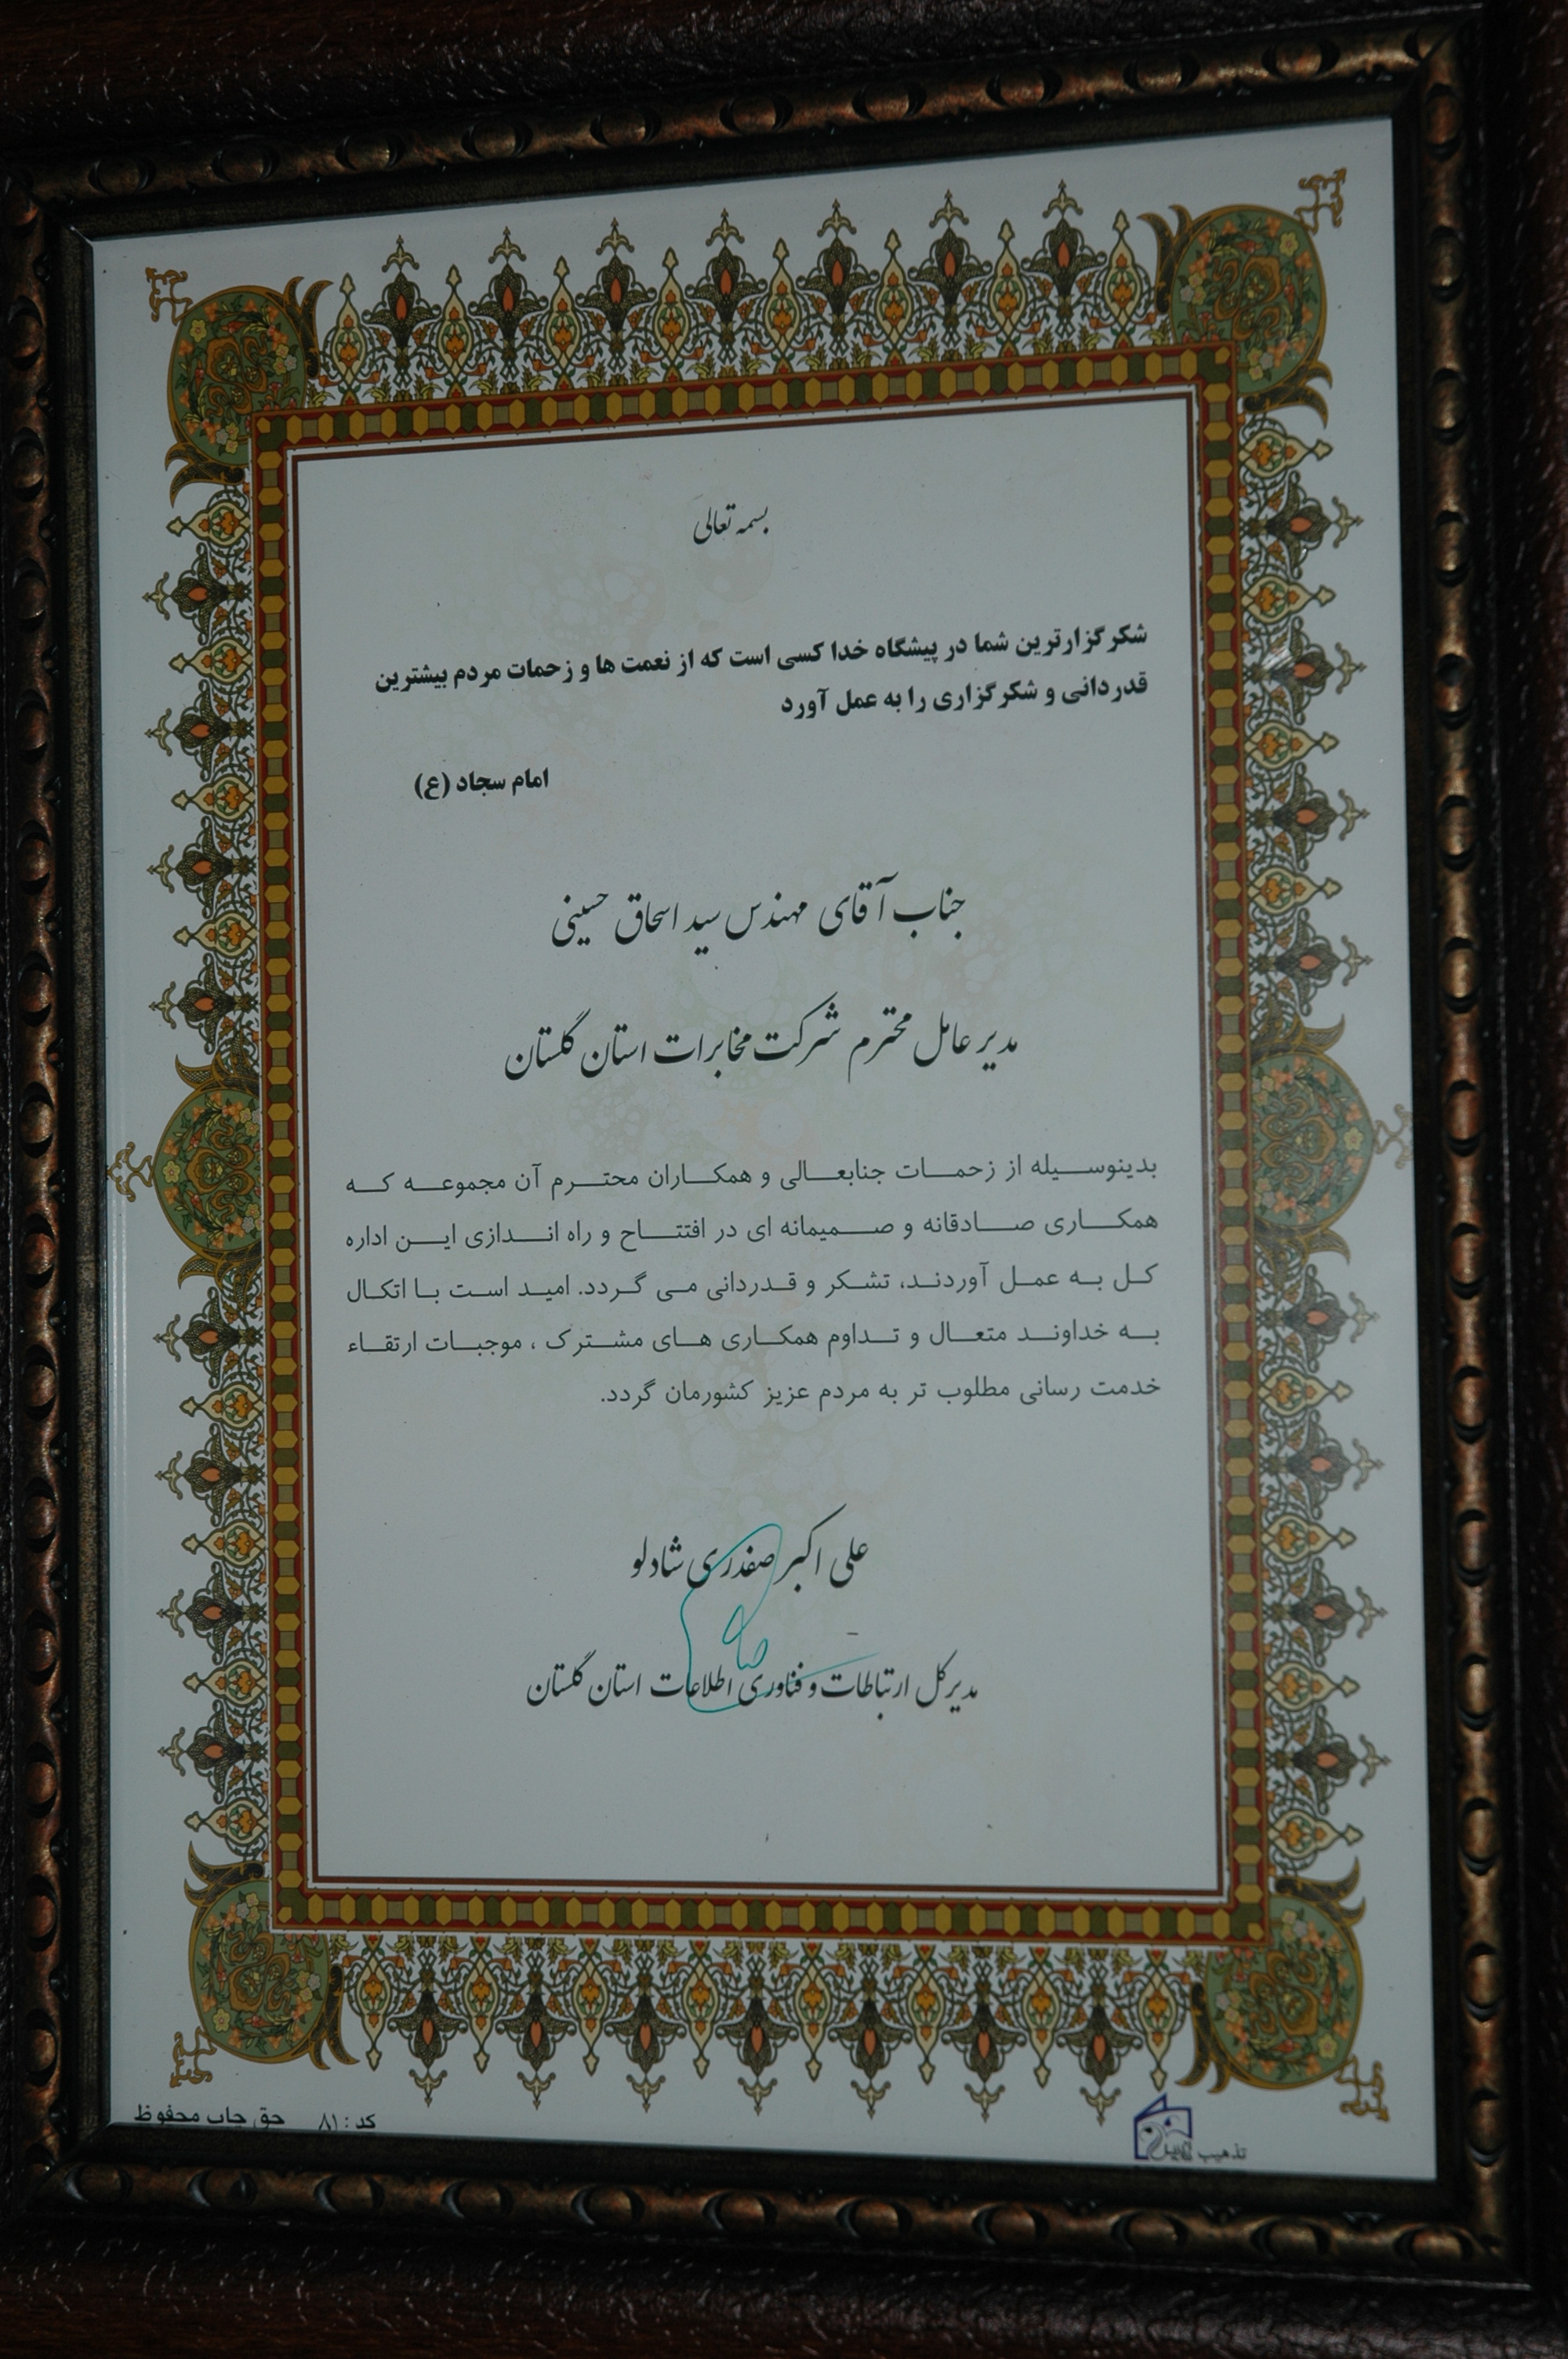 بسمه تعالی
شکرگزارترین شما در پیشگاه خدا کسی است که از نعمت ها و زحمات مردم بیشترین
قدردانی و شکرگزاری را به عمل آورد
امام سجاد (ع)
جناب آقای مهندس سید اسحاق حسینی
مدیر عامل محترم شرکت مخابرات استان گلستان
بدینوسیله از زحمات جنابعالی و همکاران محترم آن مجموعه که
همکاری صادقانه و صمیمانه ای در افتتاح و راه اندازی این اداره
کل به عمل آوردند، تشکر و قدردانی می گردد. امید است با اتکال
به خداوند متعال و تداوم همکاری های مشترک ، موجبات ارتقاء
خدمت رسانی مطلوب تر به مردم عزیز کشورمان گردد.
علی اکبر صفدری شادلو
مدیرکل ارتباطات و فناوری اطلاعات استان گلستان
تذهیب
کد : ۸۱ حق چاپ محفوظ